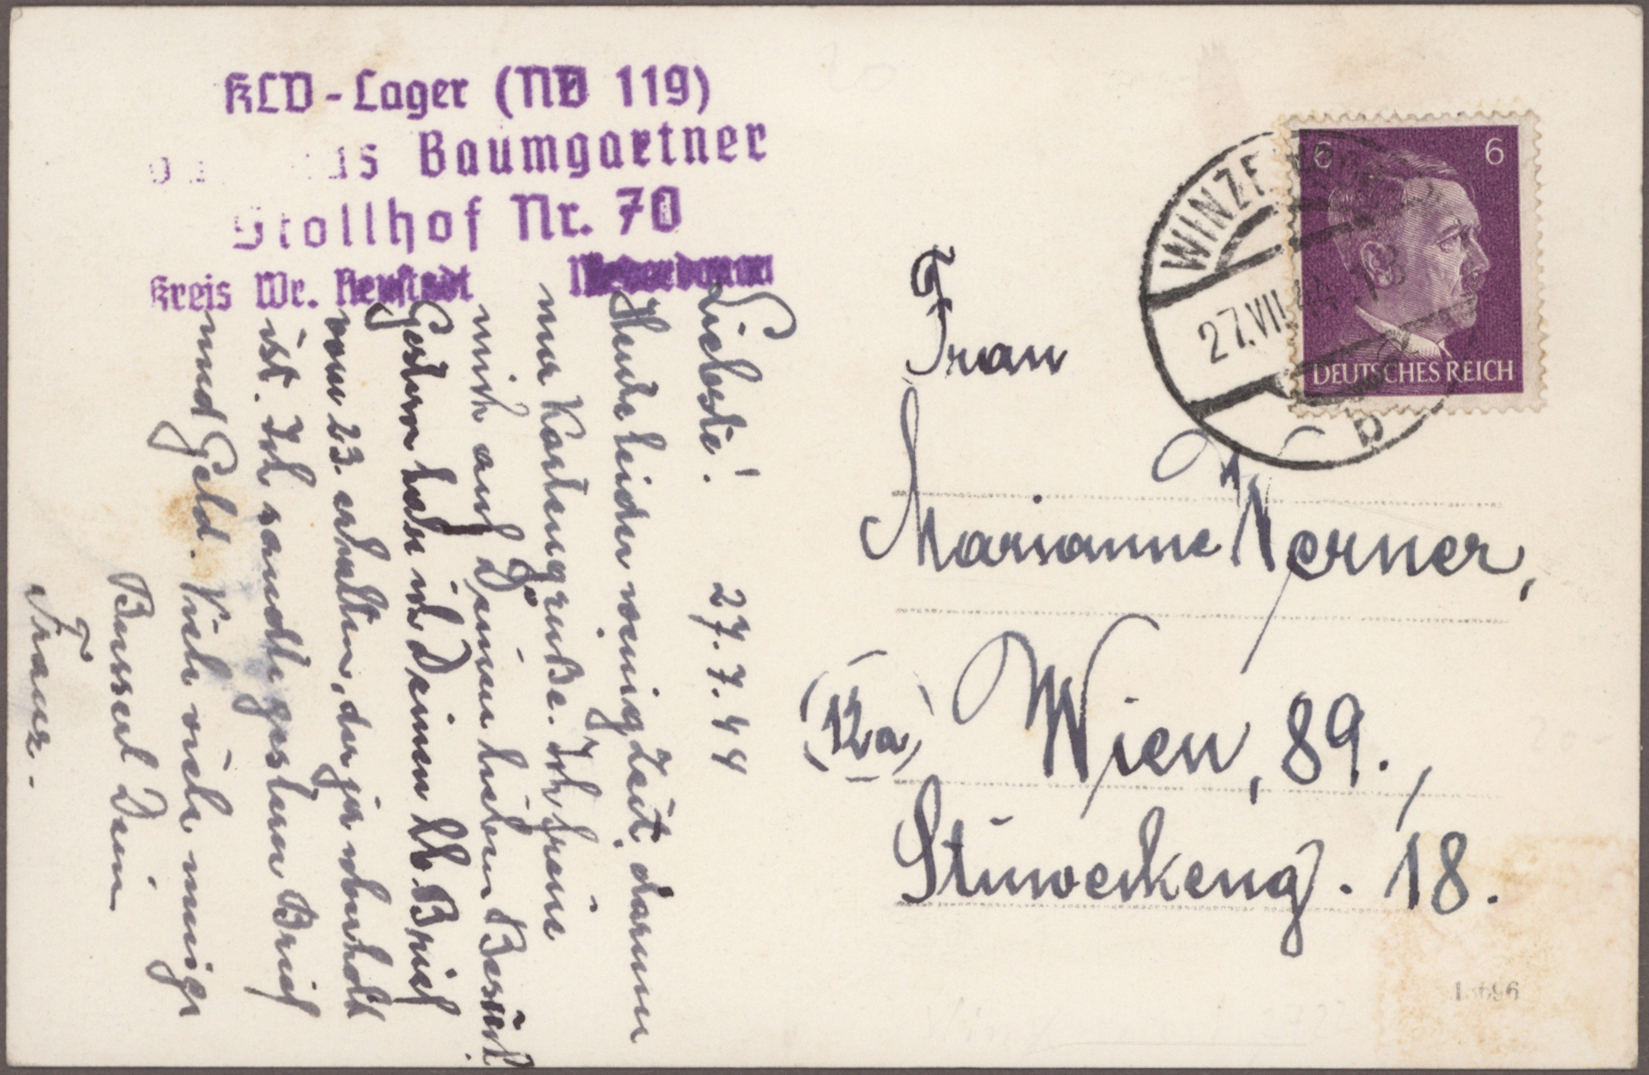 KLV-Lager (ND 119)
Baumgartner
Stollhof Nr. 70
Kreis Wr. Neustadt Niederdonau
Liebste! 27.7.44
Heute leider wenig Zeit, darum
nur Kartengrüße. Ich freue
mich auf Deinen lieben Besuch.
Gestern habe ich Deinen lb. Brief
vom 23. erhalten, der ja
ist. Ich sandte gestern Brief
und Geld. Viele viele
Bussel Dein
Franz.
WINZE
27.VII.44.18
b
6 6
DEUTSCHES REICH
Frau
Marianne Werner,
(12a) Wien, 89.,
Stuweckeng. 18.